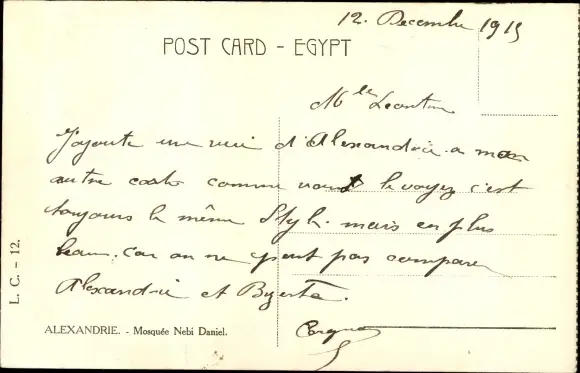 12. Decembre 1915
POST CARD - EGYPT
Mlle Leontine
J'ajoute une vue d'Alexandrie a mon
autre carte comme vous le voyez c'est
toujours le même Style. mais en plus
beau. Car on ne peut pas comparer
Alexandrie et Bizerte.
L. C. - 12.
ALEXANDRIE. - Mosquée Nebi Daniel.